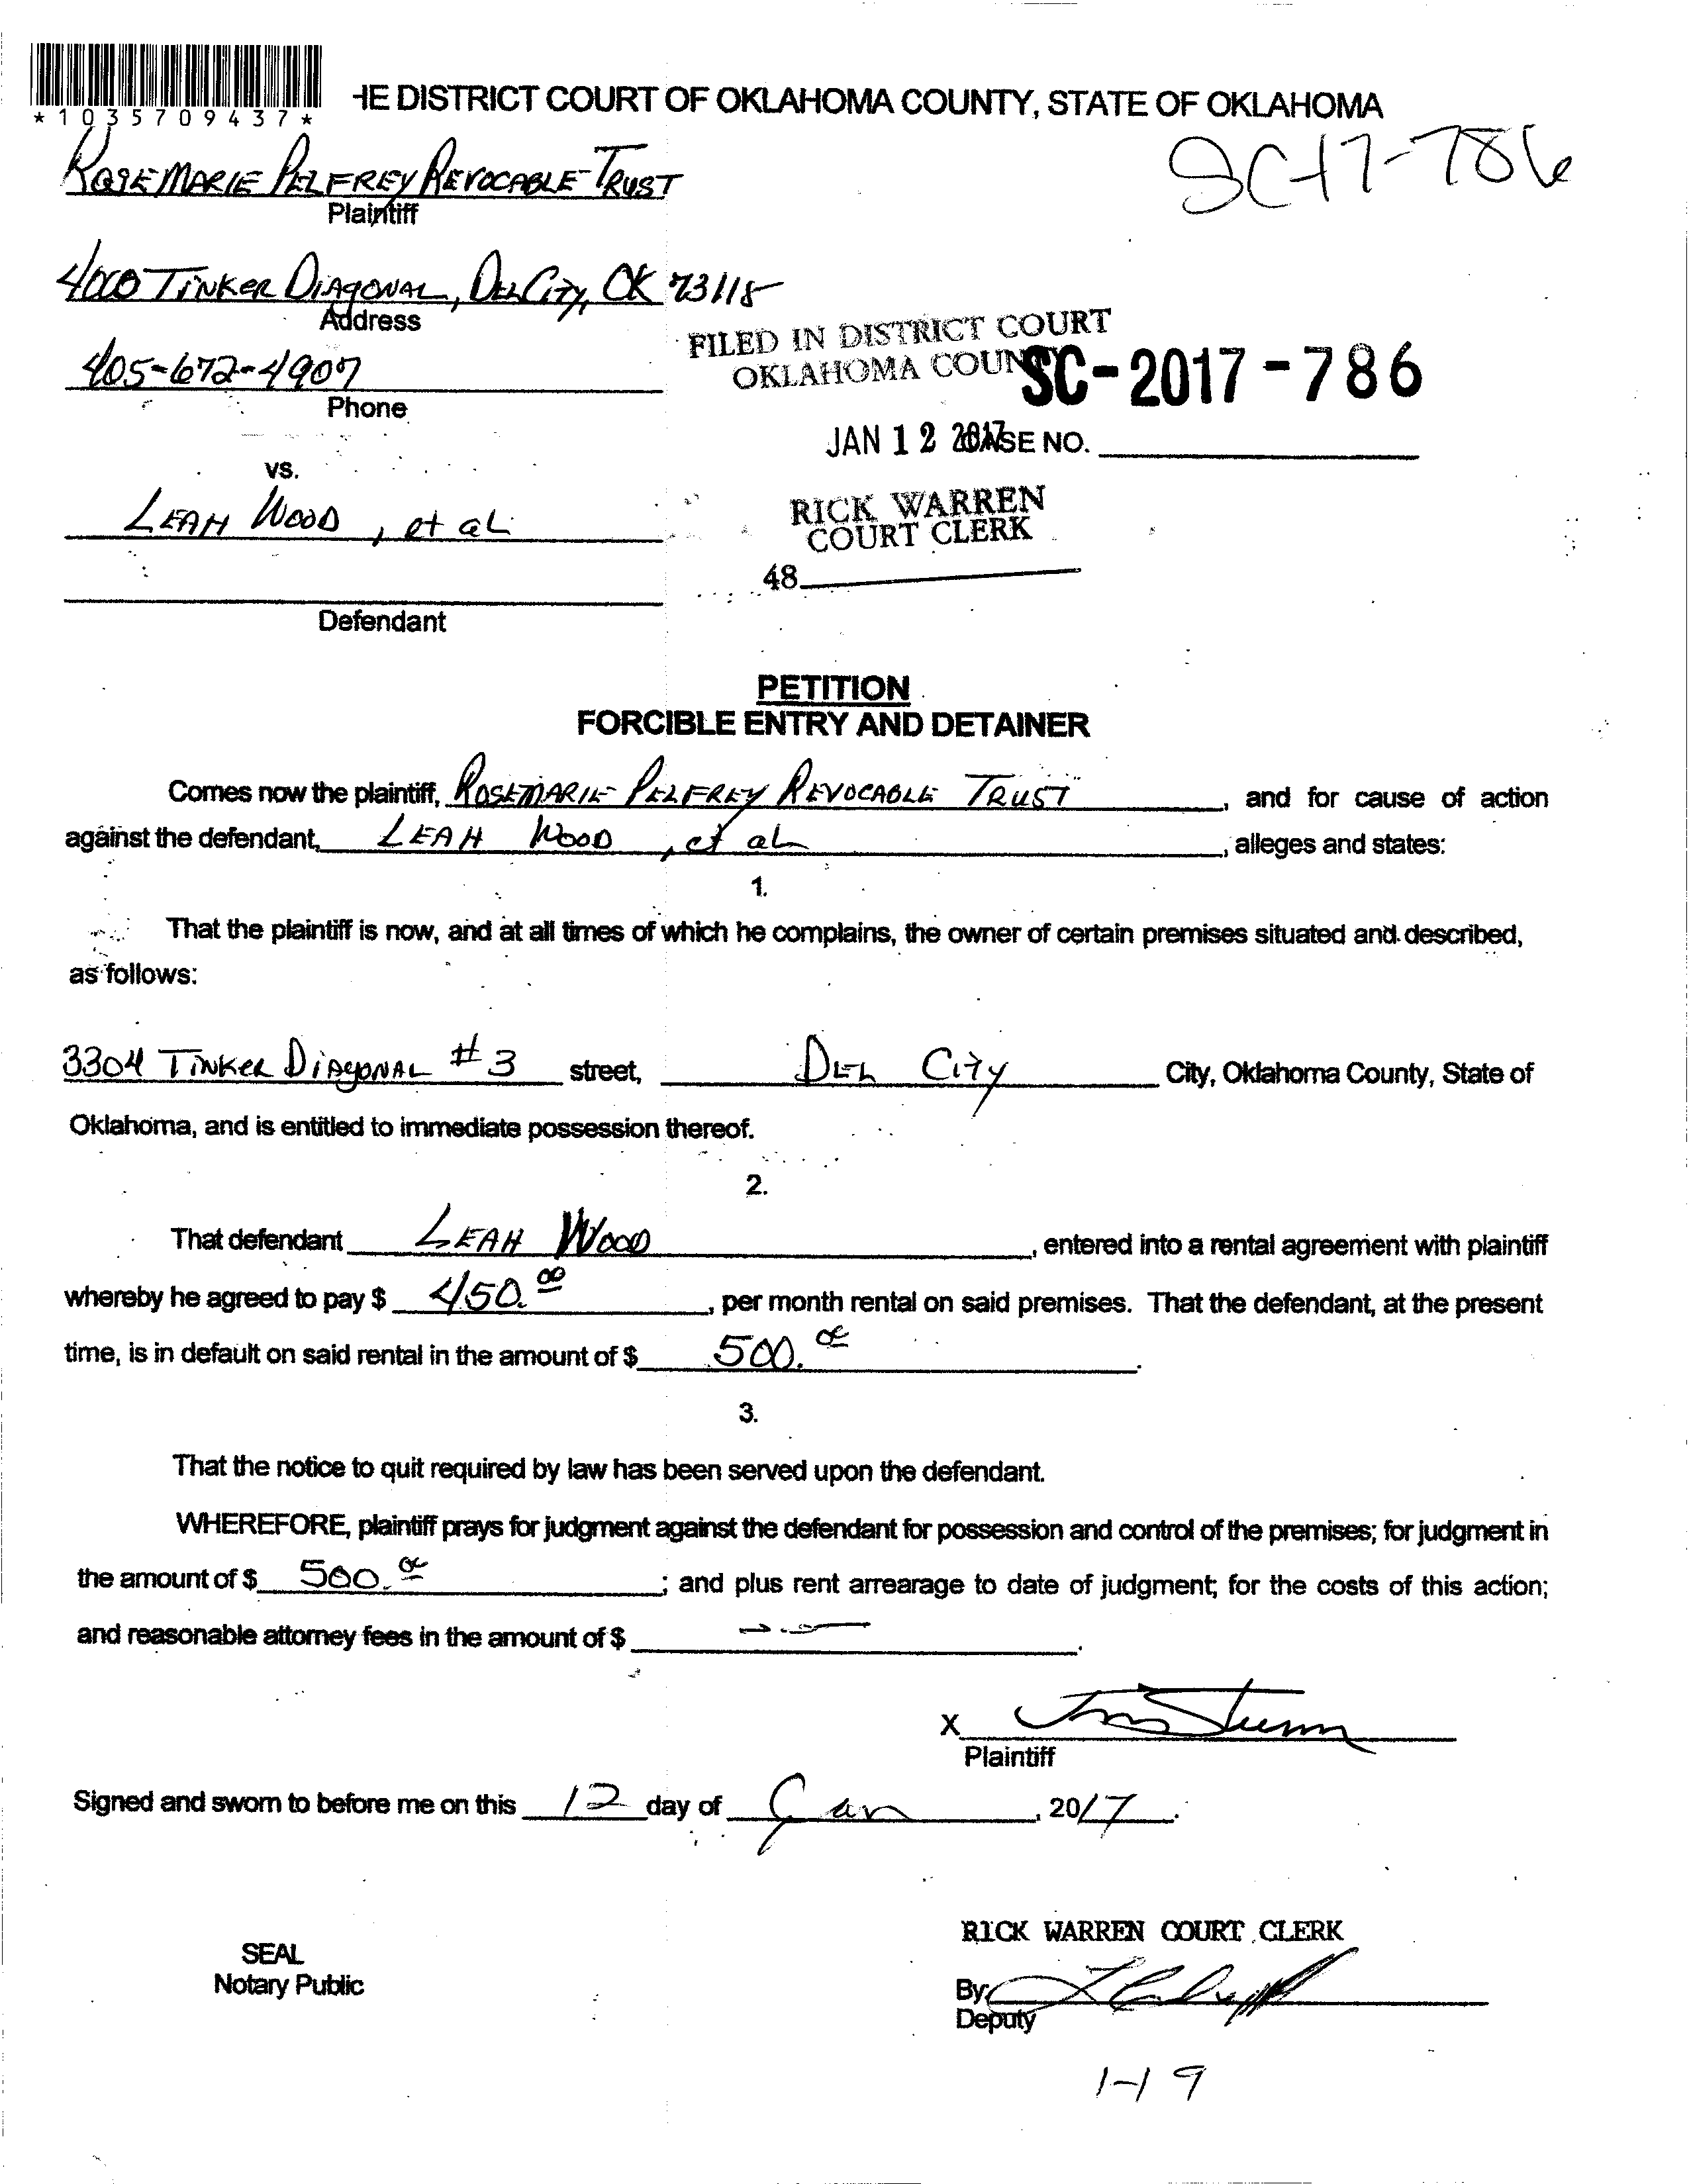 HE DISTRICT COURT OF OKLAHOMA COUNTY, STATE OF OKLAHOMA
*1035709437*
SC-17-786
ROSEMARIE PELFREY REVOCABLE TRUST
Plaintiff
4000 TINKER DIAGONAL, DEL CITY, OK 73115
Address
FILED IN DISTRICT COURT
OKLAHOMA COUNTY
SC-2017-786
405-672-4907
Phone
JAN 12 2017
CASE NO.
vs.
RICK WARREN
COURT CLERK
LEAH WOOD, et al
48
Defendant
PETITION
FORCIBLE ENTRY AND DETAINER
Comes now the plaintiff, ROSEMARIE PELFREY REVOCABLE TRUST, and for cause of action
against the defendant, LEAH WOOD, et al, alleges and states:
1.
That the plaintiff is now, and at all times of which he complains, the owner of certain premises situated and described,
as follows:
3304 TINKER DIAGONAL #3 street, DEL CITY City, Oklahoma County, State of
Oklahoma, and is entitled to immediate possession thereof.
2.
That defendant LEAH WOOD, entered into a rental agreement with plaintiff
whereby he agreed to pay $ 450.00, per month rental on said premises. That the defendant, at the present
time, is in default on said rental in the amount of $ 500.00.
3.
That the notice to quit required by law has been served upon the defendant.
WHEREFORE, plaintiff prays for judgment against the defendant for possession and control of the premises; for judgment in
the amount of $ 500.00; and plus rent arrearage to date of judgment; for the costs of this action;
and reasonable attorney fees in the amount of $
X
Plaintiff
Signed and sworn to before me on this 12 day of Jan, 2017.
RICK WARREN COURT CLERK
SEAL
Notary Public
By
Deputy
1-19